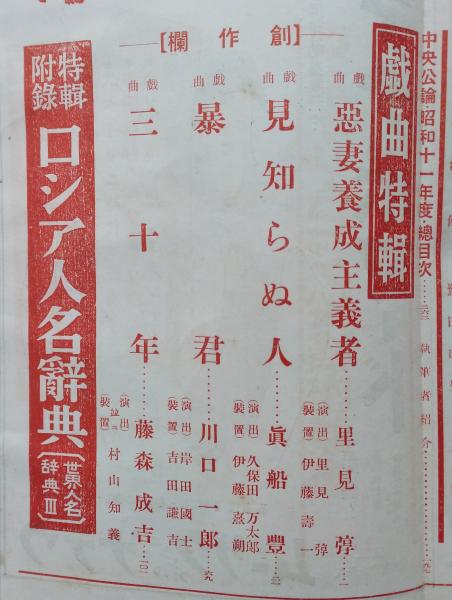 中央公論・昭和十一年度・總目次……
執筆者紹介……
戲曲特輯
【創作欄】
戲曲 惡妻養成主義者……里見弴
(演出) 里見弴
(裝置) 伊藤壽一
戲曲 見知らぬ人……眞船豐
(演出) 久保田万太郎
(裝置) 伊藤熹朔
戲曲 暴君……川口一郎
(演出) 岸田國士
(裝置) 吉田謙吉
戲曲 三十年……藤森成吉…(一〇一)
(演出竝ニ裝置) 村山知義
特輯附錄
ロシア人名辭典(世界人名辞典Ⅲ)